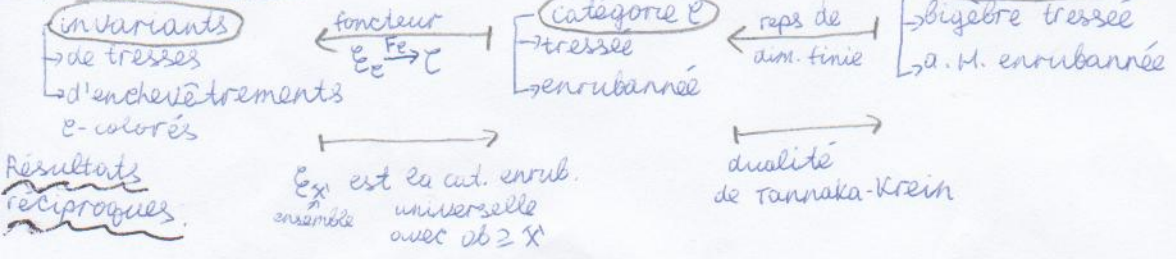 invariants
→ de tresses
→ d'enchevêtrements
C-colorés
foncteur
E_C F_C→ C
catégorie C
→ tressée
→ enrubannée
reps de
dim. finie
→ bigèbre tressée
→ a. H. enrubannée
Résultats
réciproques.
E_X est la cat. enrub.
ensemble
universelle
avec ob ⊇ X
dualité
de Tannaka-Krein